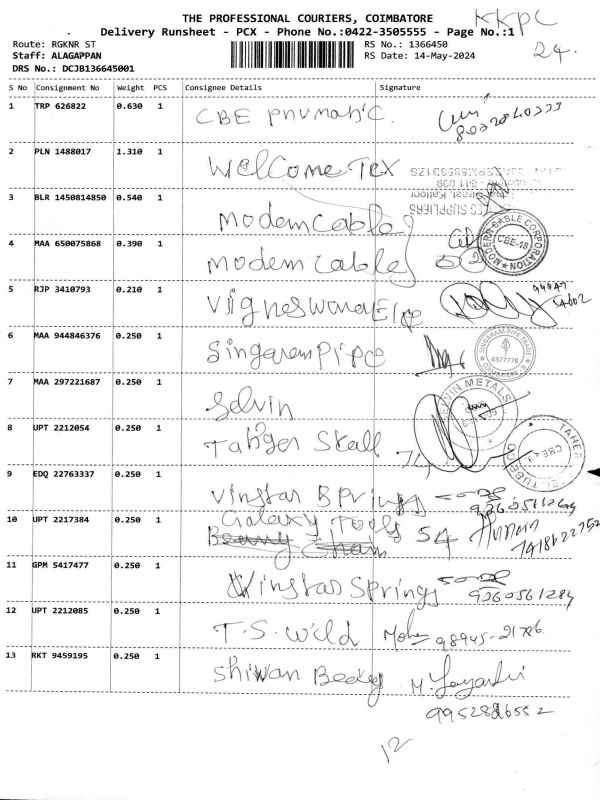 THE PROFESSIONAL COURIERS, COIMBATORE
KKPC
Delivery Runsheet - PCX - Phone No.:0422-3505555 - Page No.:1
24.
Route: RGKNR ST
RS No.: 1366450
Staff: ALAGAPPAN
RS Date: 14-May-2024
DRS No.: DCJB136645001
S No Consignment No Weight PCS Consignee Details Signature
1 TRP 626822 0.630 1 CBE pnumatic.
2 PLN 1488017 1.310 1 Welcome Tex
3 BLR 1450814850 0.540 1 modern cable
SUPPLIERS
4 MAA 650075868 0.390 1 modern cable
MODERN CABLE CORPORATION
CBE-18
5 RJP 3410793 0.210 1
6 MAA 944846376 0.250 1 Singaram pipe
SINGARAM PIPE TRADE
4377778
7 MAA 297221687 0.250 1 Selvin
METALS
8 UPT 2212054 0.250 1
9 EDQ 22763337 0.250 1 vinstar Springs
10 UPT 2217384 0.250 1 Galaxy Tools 54
11 GPM 5417477 0.250 1 Vinstar Springs 9360561284
12 UPT 2212085 0.250 1 T.S. Wild
13 RKT 9459195 0.250 1
12